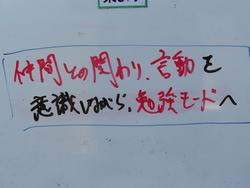 仲間との関わり、言動を
意識しながら、勉強モードへ